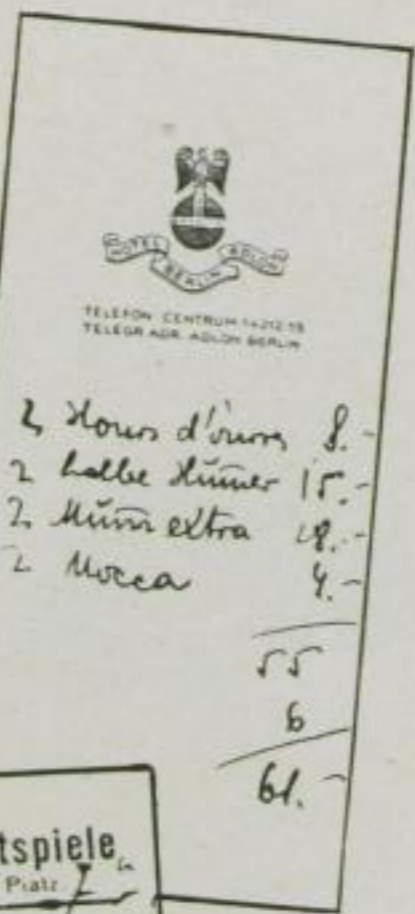 HOTEL ADLON
BERLIN
TELEFON CENTRUM
TELEGR. ADR. ADLON BERLIN
2 Hours d'ouvres 8.-
2 halbe Hümer 15.-
2 Mum̄ extra 28.-
2 Mocca 4.-
55
6
61.-
tspiele
Platz